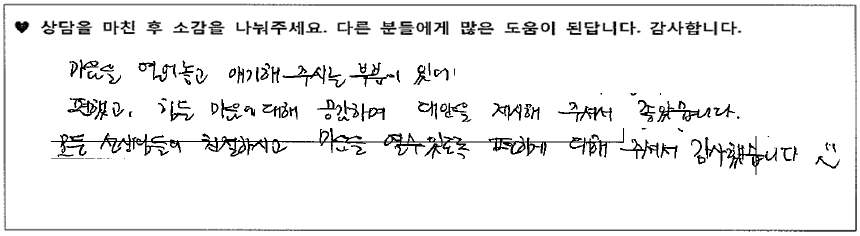 ♥ 상담을 마친 후 소감을 나눠주세요. 다른 분들에게 많은 도움이 된답니다. 감사합니다.
마음을 열어놓고 얘기해 주시는 부분이 있어
편했고, 힘든 마음에 대해 공감하여 대안을 제시해 주셔서 좋았습니다.
모든 선생님들이 친절하시고 마음을 열수있도록 편하게 대해 주셔서 감사했습니다